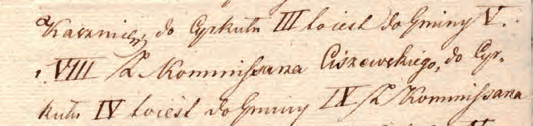 Kazmierz, do Cyrkułu III to iest do Gminy V.
i VIII Kommissarza Ciszewskiego, do Cyr-
kułu IV to iest do Gminy IX Kommissarza